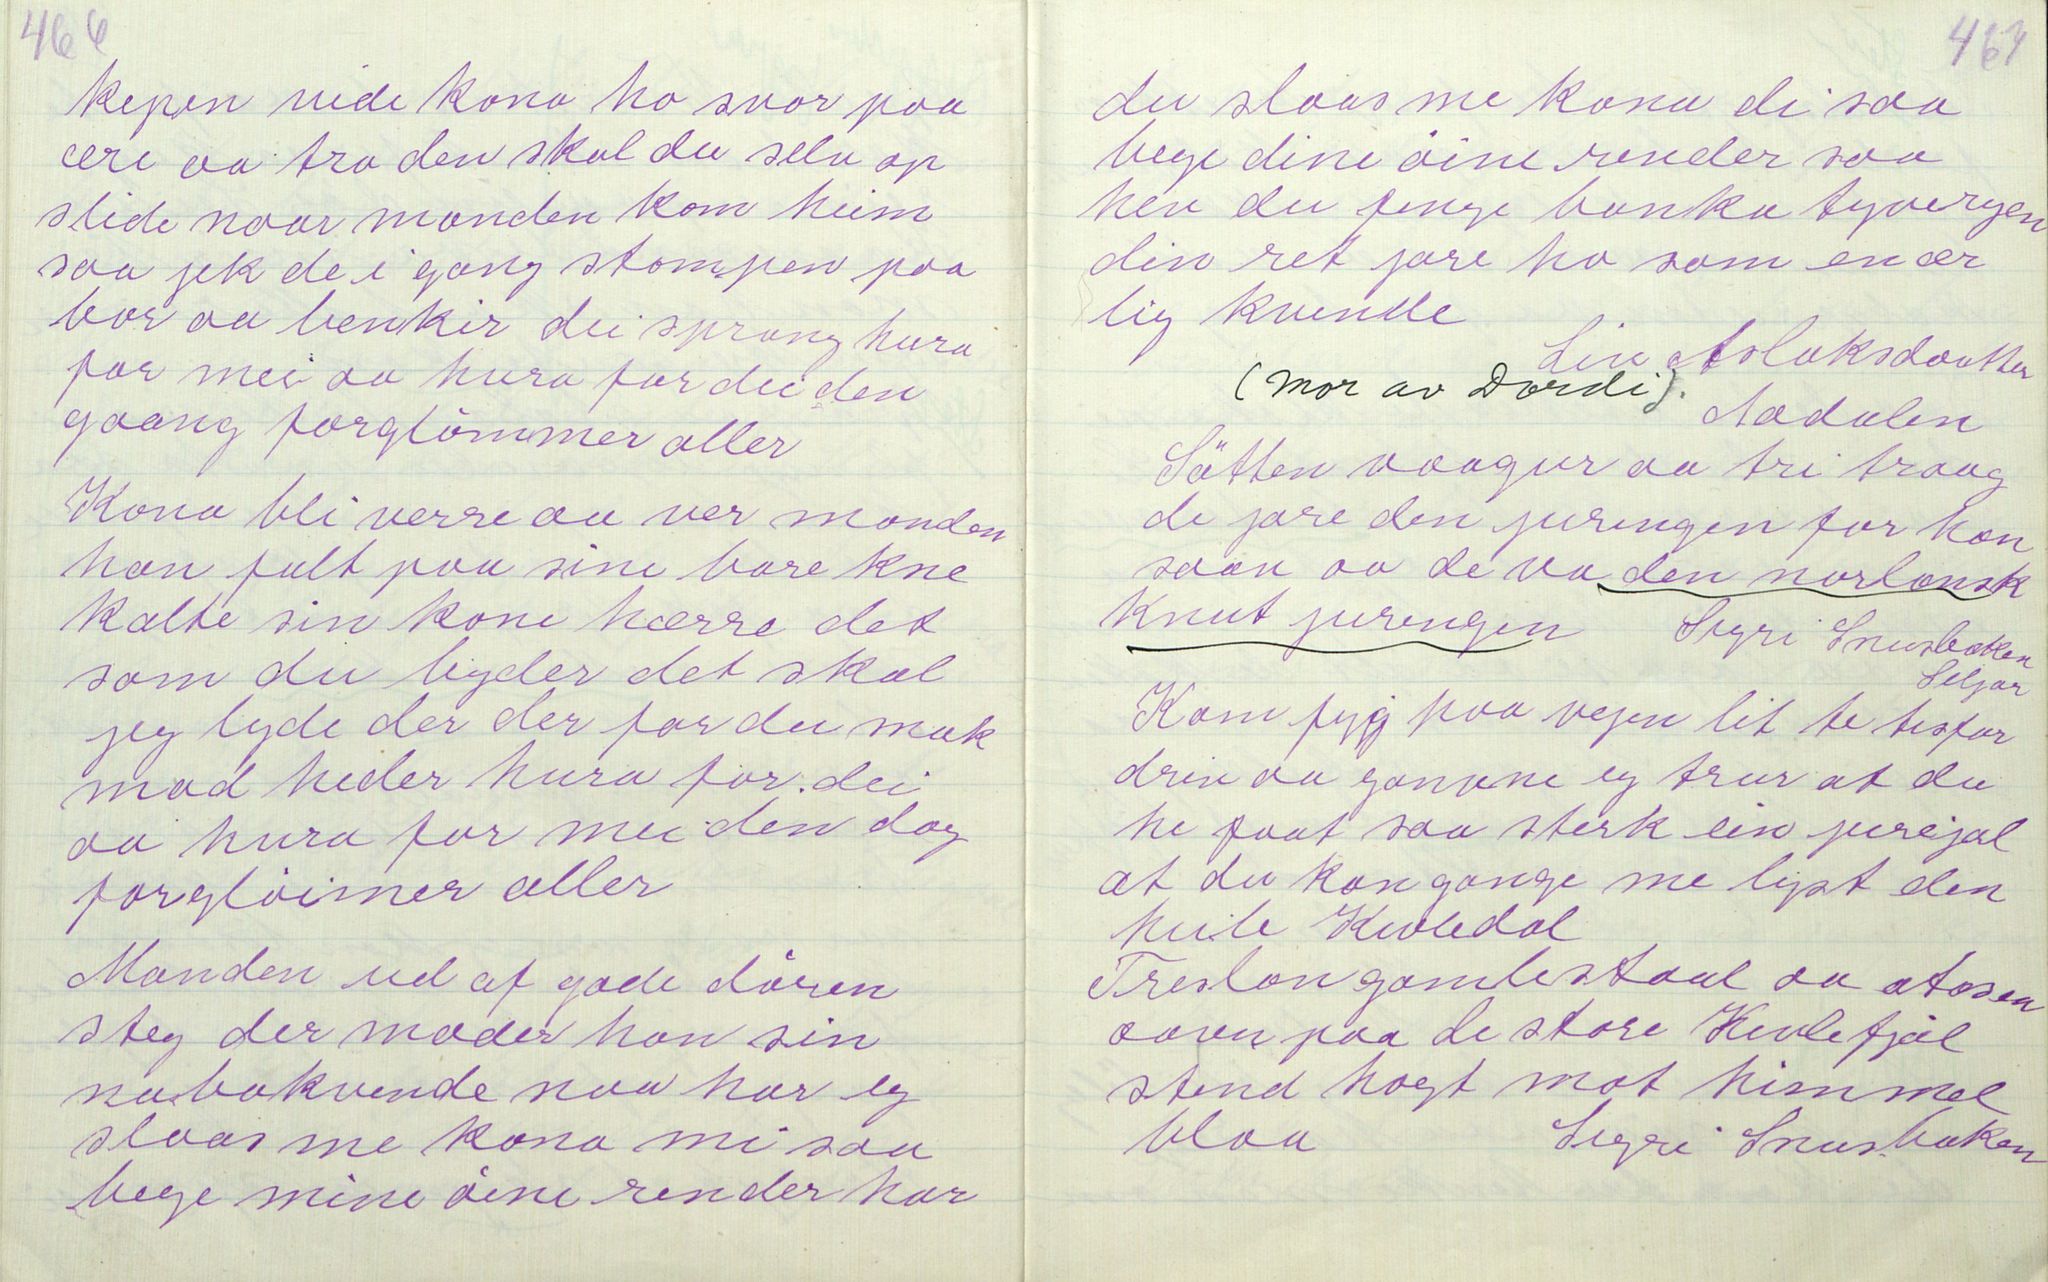 466
kepen vide kona ho svor paa
ære aa tro den skal du selv op
slide naar manden kom heim
saa jek de i gang stompen paa
bor aa benkir dei sprang hura
for mei aa hura for dei den
gaang forglömmer aller
Kona bli verre aa ver manden
han falt paa sine bare kne
kalte sin kone hærre det
som du byder det skal
jeg lyde der der for du mak
mad heder hura for dei
aa hura for mei den dag
forglöimer aller
Manden ud af gade dören
steg der møder han sin
nabokvende naa har eg
slaas me kona mi saa
bege mine öine render har
467
du slaas me kona di saa
bege dine öine render saa
hev du fenge banka tyvergen
din ret jore ho som en ær
lig kvende
Liv Aslaksdaatter
(mor av Dordi).
Aadalen
Sötten vaagur aa tri traag
de jore den juringen for han
saan aa de va den norlansk
Knut juringen
Sigri Snusbaken
Seljor
Kom fygj paa vejen lit te tesfar
drin aa ganvne eg trur at du
he faat saa sterk ein jurejal
at du kan gange me lyst den
heile Kivledal
Treslon gamlestaul aa atosen
aavn paa de store Kivlefjæl
stend hogt mot himmel
blaa
Sigri Snusbaken